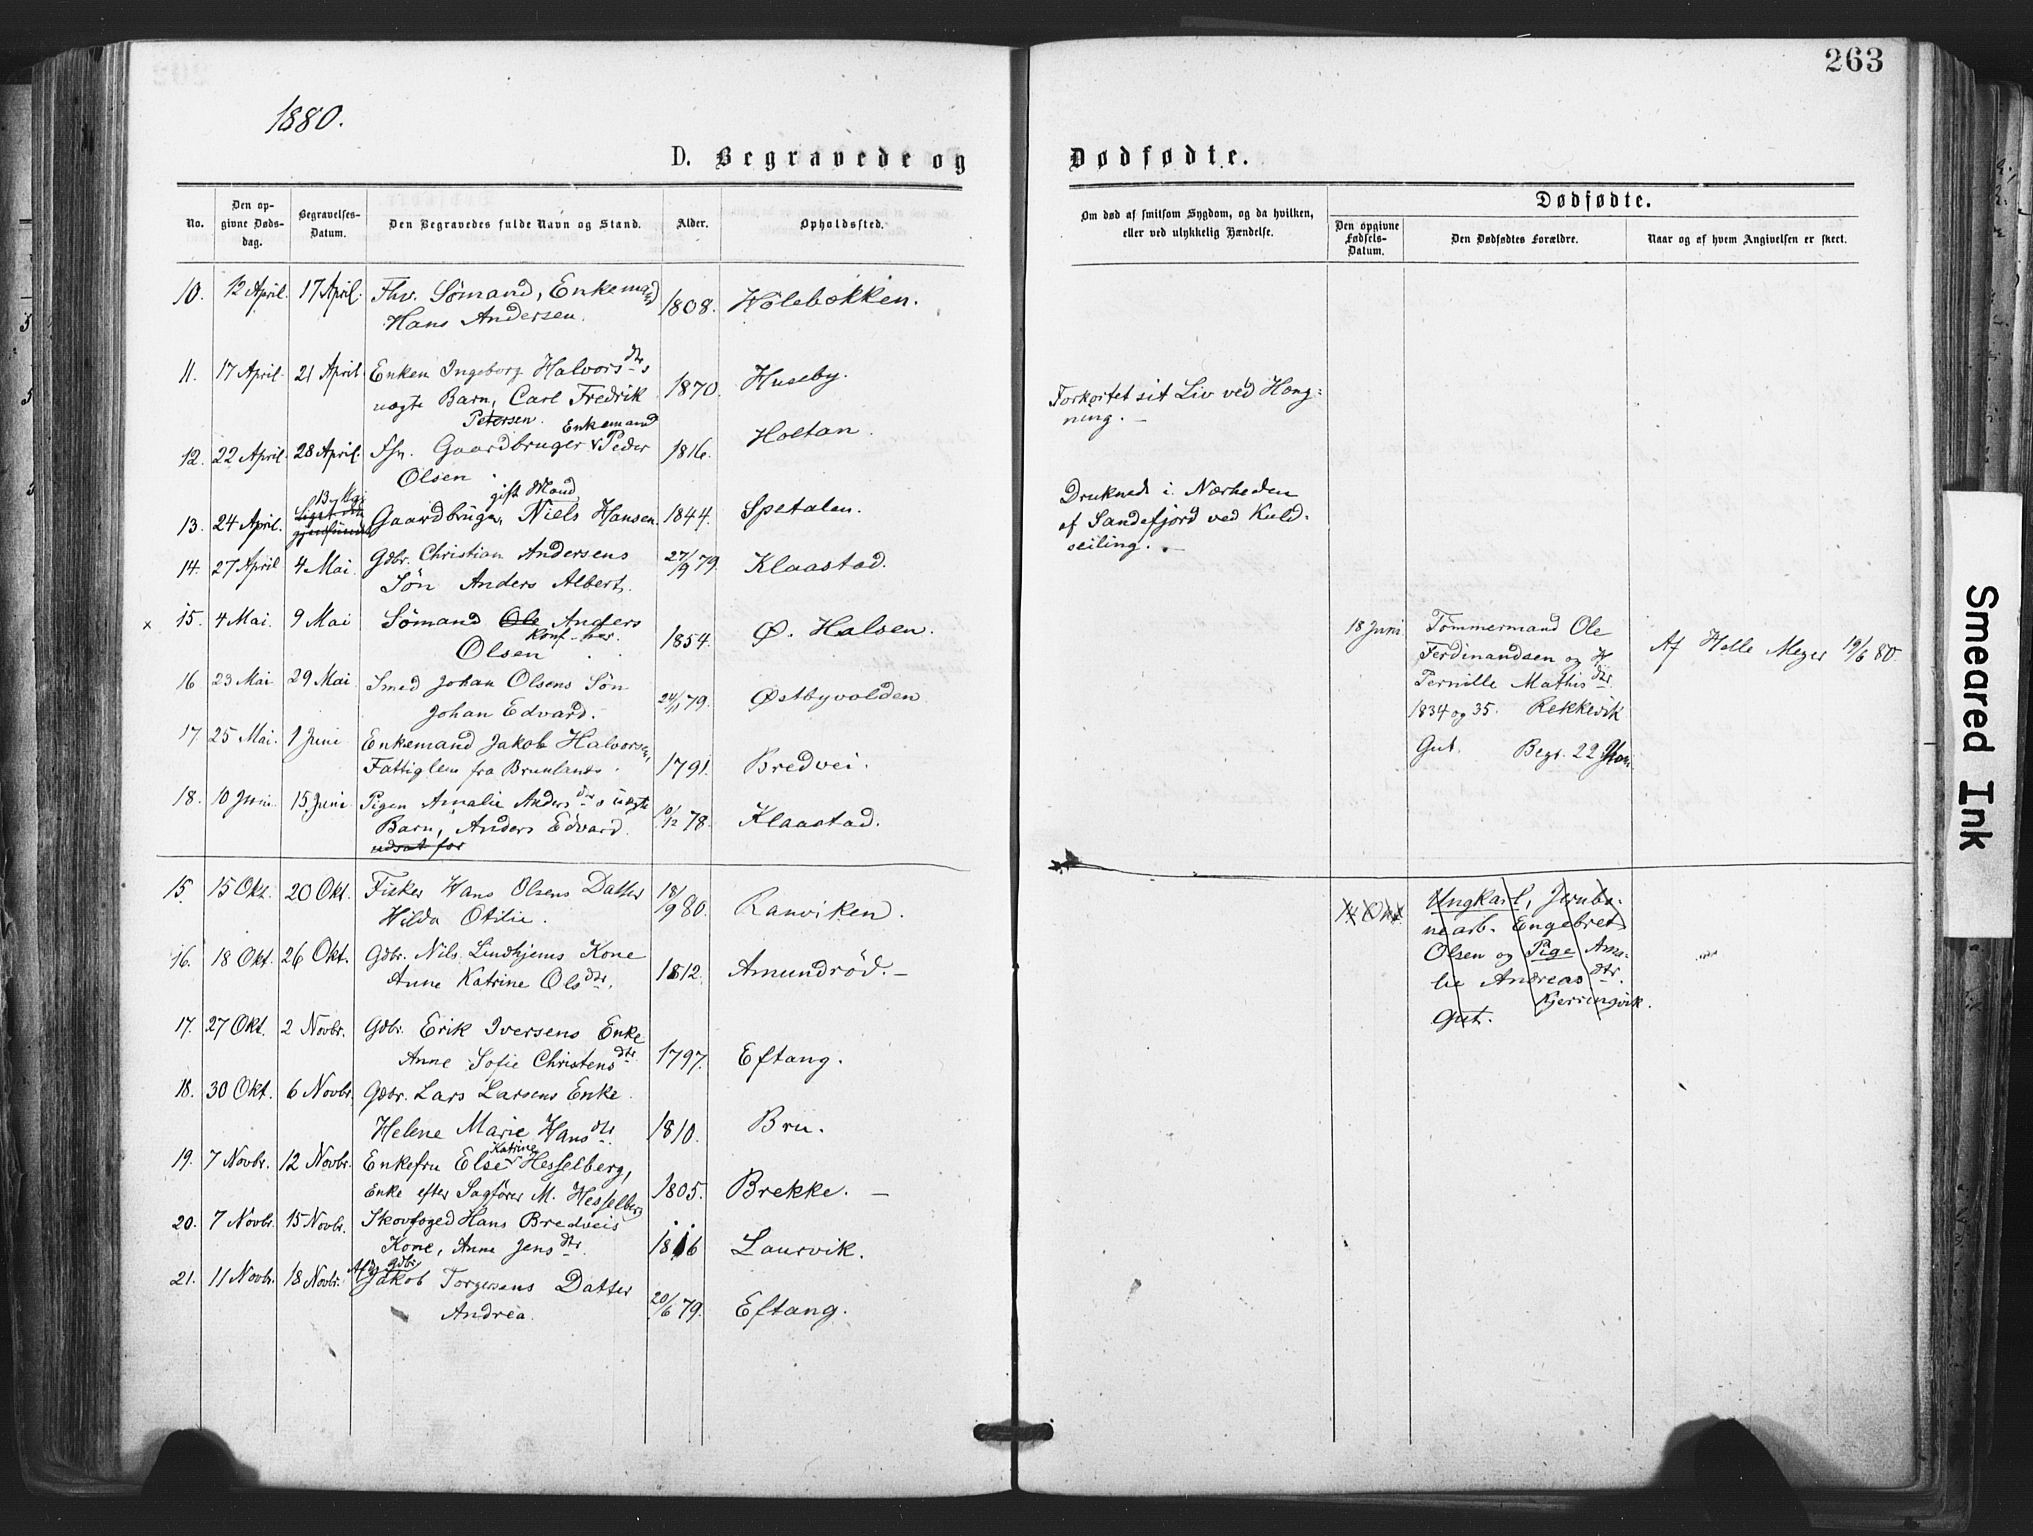 263
1880.
D. Begravede og Dødfødte.
No.
Den opgivne Dødsdag.
Begravelses-Datum.
Den Begravedes fulde Navn og Stand.
Alder.
Opholdssted.
Om død af smitsom Sygdom, og da hvilken, eller ved ulykkelig Hændelse.
Dødfødte.
Den opgivne Fødsels-Datum.
Den Dødfødtes Forældre.
Naar og af hvem Angivelsen er skeet.
10. 12 April. 17 April. Fhv. Sømand, Enkemand 1808. Holebækken.
Hans Andersen.
11. 17 April. 21 April. Enken Ingeborg Halvorsdtrs 1870. Huseby.
uægte Barn, Carl Fredrik
Petersen.
Forkortet sit Liv ved Hæng-
ning. –
Enkemand
12. 22 April. 28 April. Gaardbruger Peder 1816. Holtan.
Olsen
gift Mand
13. 24 April. Gaardbruger, Niels Hansen. 1844. Spetalen.
Druknede i Nærheden
af Sandefjord ved Kuld-
seiling. –
14. 27 April 4 Mai. Gdbr. Christian Andersens 27/9 79. Klaastad.
Søn Anders Albert.
x 15. 4 Mai. 9 Mai Sømand Ole Anders 1854. Ø. Halsen.
Olsen
16 23 Mai 29 Mai Smed Johan Olsens Søn 24/11 79. Østbyvolden
Johan Edvard.
17 25 Mai. 1 Juni Enkemand Jakob Halvorsen, 1791. Bredvei.
Fattiglem fra Brunlanes.
18. 10 Juni 15 Juni Pigen Amalie Andersdtrs uægte 10/12 78. Klaastad.
Barn, Anders Edvard.
udsat for
18 Juni
Tømmermand Ole
Ferdinandsen og H
Pernille Mathisdtr.
1834 og 35. Rekkevik
Gut. Begr. 22 Juni
Af Helle Meyer 19/6 80.
15. 15 Okt. 20 Okt. Fisker Hans Olsens Datter 18/9 80. Ranviken.
Hilda Otilie.
16. 18 Okt. 26 Okt. Gdbr. Nils Lindhjems Kone 1812. Amundrød. –
Anne Katrine Olsdtr.
17. 27 Okt. 2 Novbr. Gdbr. Erik Iversens Enke 1797. Eftang.
Anne Sofie Christensdtr
18. 30 Okt. 6 Novbr. Gdbr. Lars Larsens Enke
Helene Marie Hansdtr. 1810. Bru.
19. 7 Novbr. 12 Novbr. Enkefru Else Katrine Hesselberg,
Enke efter Sagfører M. Hesselberg 1805. Brekke. –
20. 7 Novbr. 15 Novbr. Skovfoged Hans Bredveis
Kone, Anne Jensdtr. 1816 Laurvik.
21. 11 Novbr. 18 Novbr. Afd. gdbr. Jakob Torgersens Datter
Andrea. 20/6 79. Eftang.
14 Okt
Ungkarl, Jernba-
nearb. Engebret
Olsen og Pige Ama-
lie Andreasdtr.
Kjerringvik.
Gut.
Smeared Ink